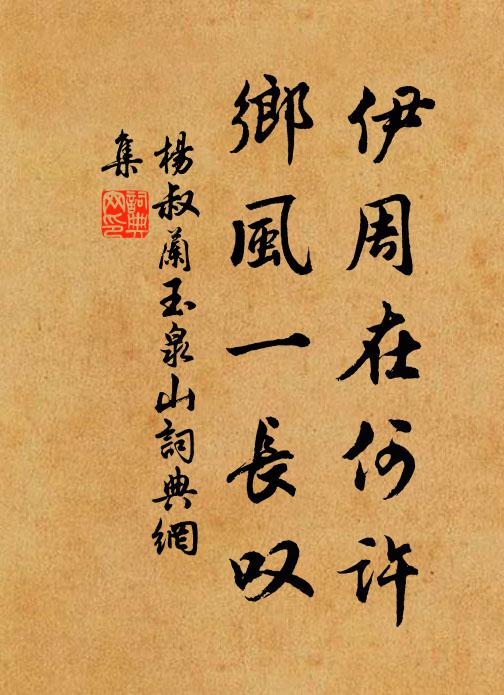 伊周在何許
鄉風一長叹
楊叔蘭玉泉山詞典網
集
詞典
网印